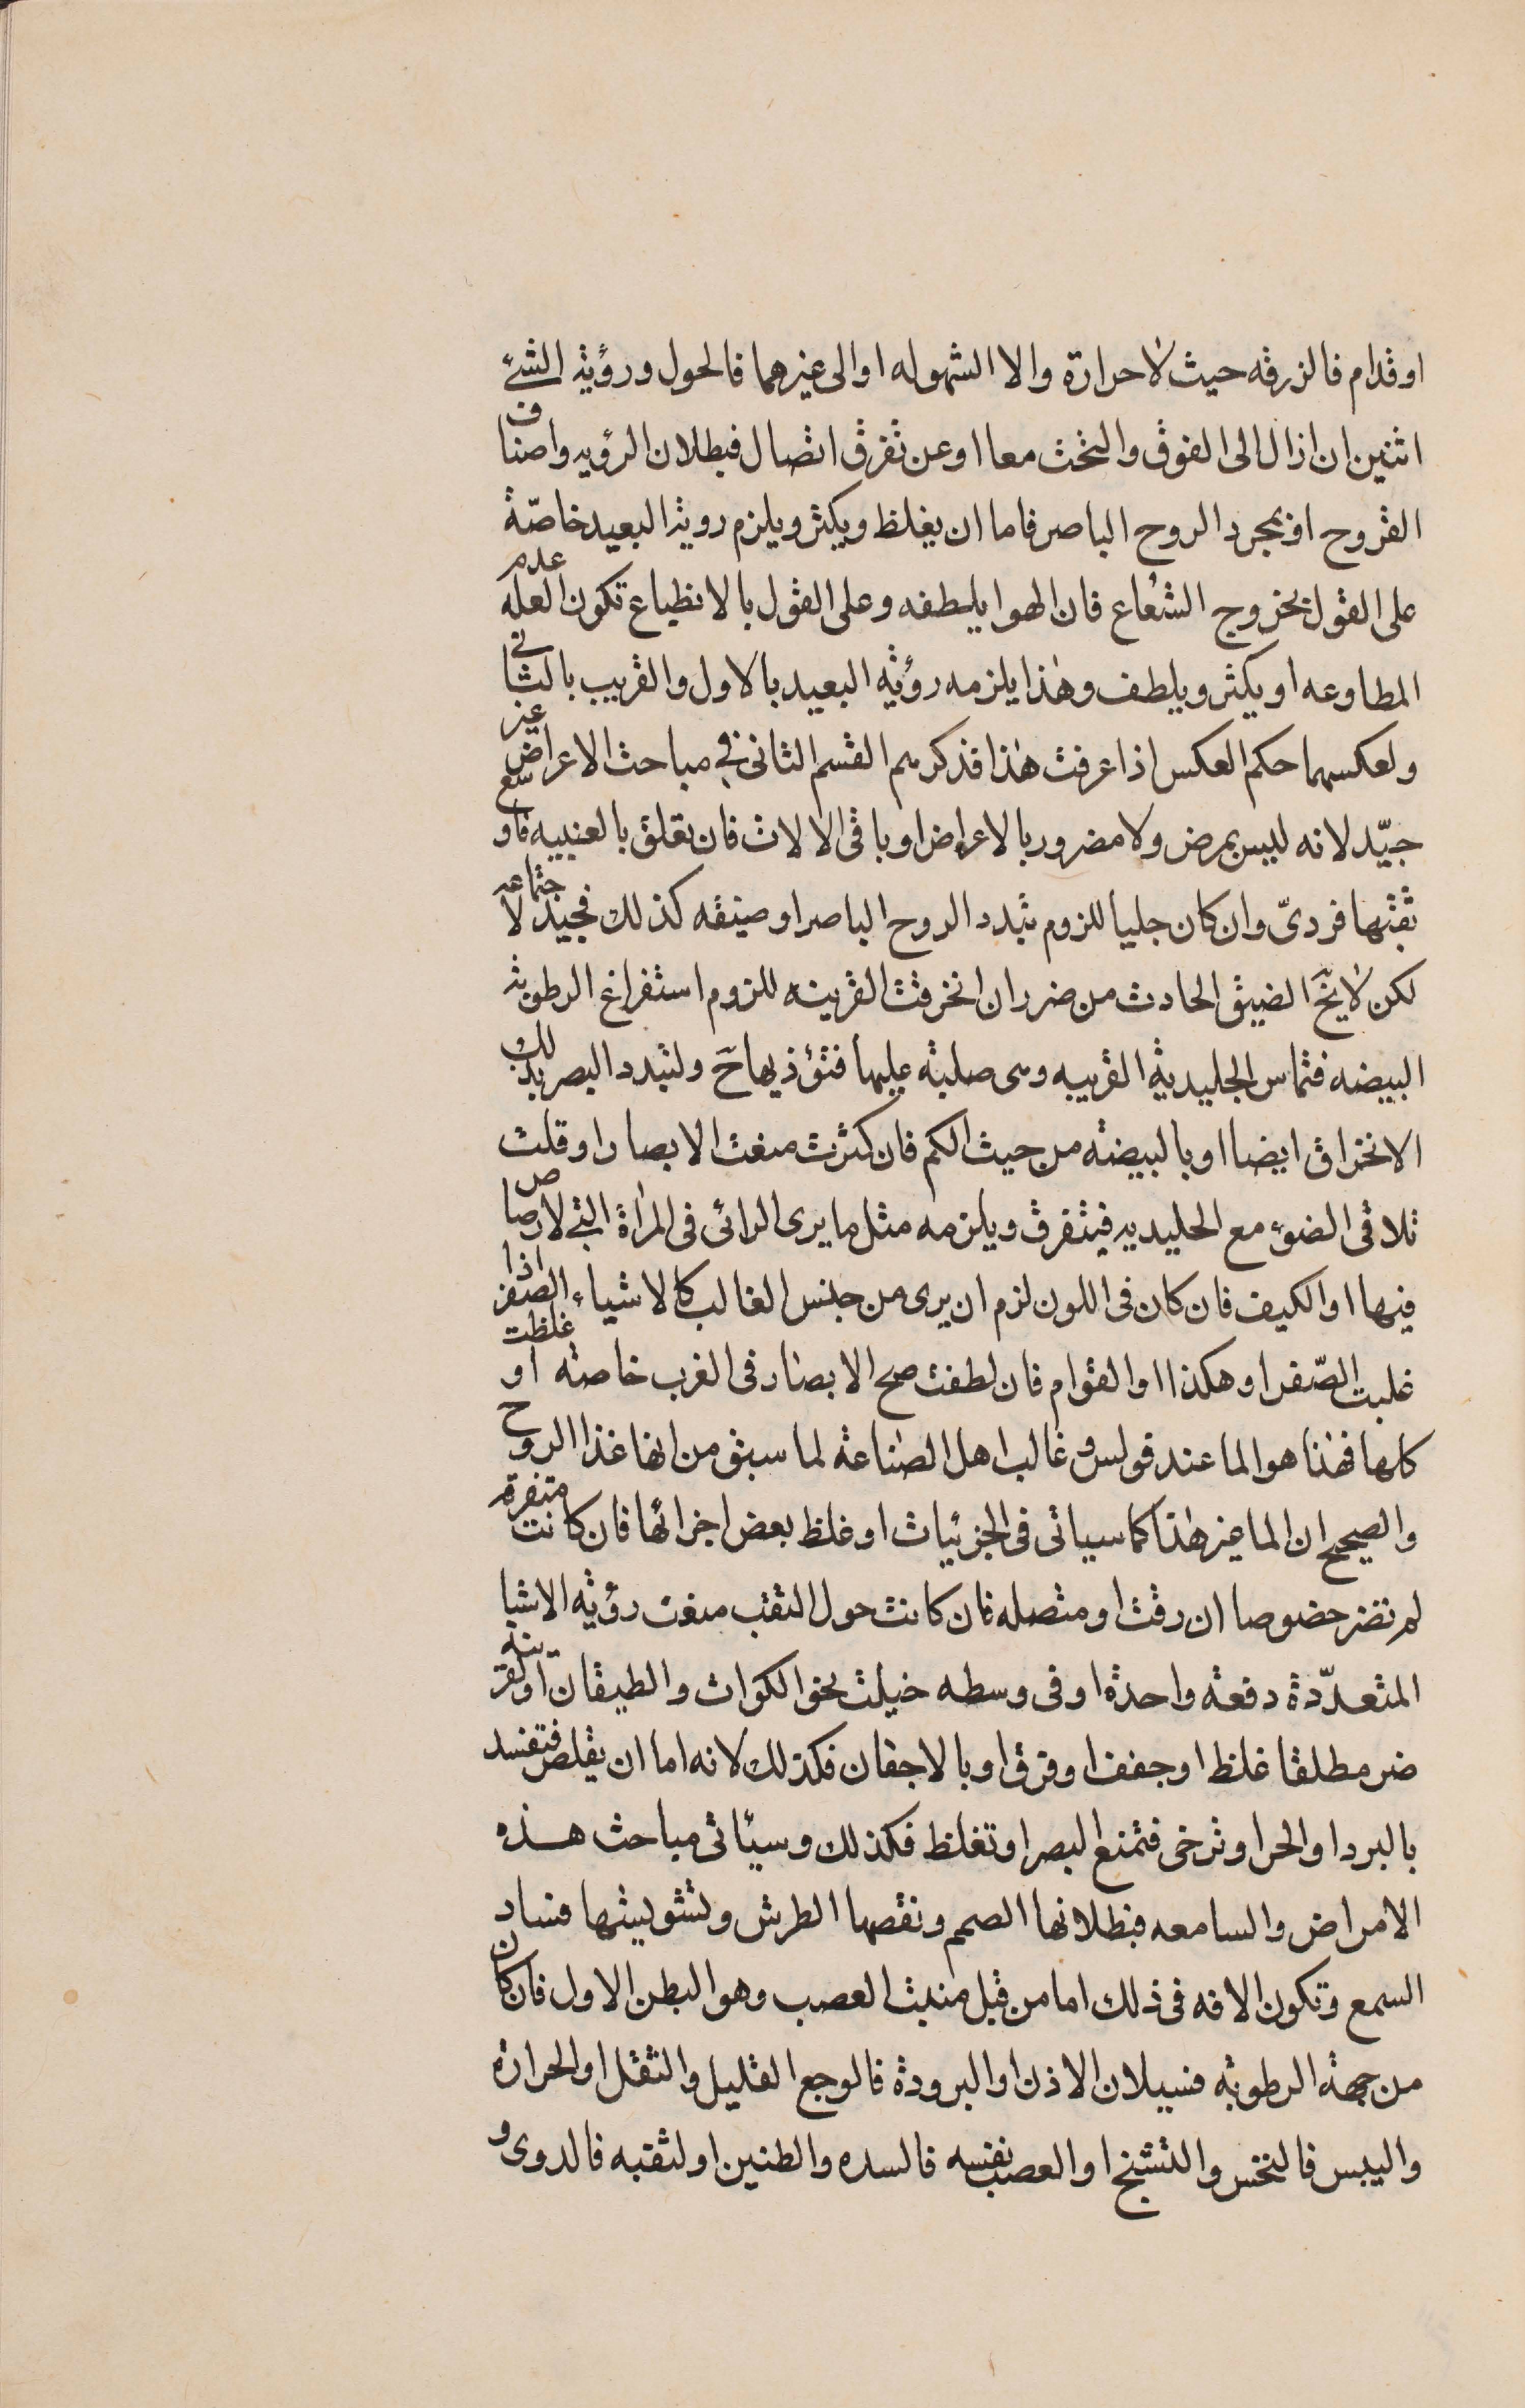 او قدام فالزرقه حيث لا حرارة والا الشهوله او الى غيرهما فالحول ورؤية الشئ
اثنين ان ازال الى الفوق والتحت معا او عن تفرق اتصال فبطلان الرؤيه واصناف
القروح او بمجرد الروح الباصر فاما ان يغلظ ويكثر ويلزم روية البعيد خاصّة
على القول بخروج الشعاع فان الهوا يلطفه وعلى القول بالانطباع تكون العله عدم
المطاوعه او يكثر ويلطف وهذا يلزمه رؤيه البعيد بالاول والقريب بالثانى
ولعكسهما حكم العكس اذا عرفت هذا فذكرهم القسم الثانى فى مباحث الاعراض غير
جيّد لانه ليس بمرض ولا مضرور بالاعراض او باقى الالات فان تعلق بالعنبيه فاوسع
ثقبها فردىّ وان كان جليا للزوم تبدد الروح الباصر او ضيقه كذلك فجيد لاجتماعه
لكن لا يخ الضيق الحادث من ضرر ان انخرقت القرنيه للزوم استفراغ الرطوبة
البيضه فتماس الجليدية القريبه وهى صلبة عليها فتؤذيها ح ولتبدد البصر بذلك
الانخراق ايضا او بالبيضة من حيث الكم فان كثرت منعت الابصار او قلت
تلاقى الضوء مع الجليديه فيتفرق ويلزمه مثل ما يرى الرائى فى المراة التى لا رصاص
فيها او الكيف فان كان فى اللون لزم ان يرى من جنس الغالب كالاشياء الصفر اذا
غلبت الصّفرا وهكذا او القوام فان لطفت صح الابصار فى القرب خاصة او غلظت
كلها فهذا هو الما عند قولس وغالب اهل الصناعة لما سبق من انها غذا الروح
والصحيح ان الما غير هذا كما سياتى فى الجزئيات او غلظ بعض اجزائها فان كانت متفرقه
لم تضر خصوصا ان رقت او متصله فان كانت حول الثقب منعت رؤية الاشيا
المتعدّدة دفعة واحدة او فى وسطه خيلت نحو الكوات والطيقان او القرنيه
ضر مطلقا غلظ او جفف او فرق او بالاجفان فكذلك لانه اما ان يقلص فتفسد
بالبرد او الحر او ترخى فتمنع البصر او تغلظ فكذلك وسيأتى مباحث هذه
الامراض والسامعه فبطلانها الصمم ونقصها الطرش وتشويشها فساد
السمع وتكون الافه فى ذلك اما من قبل منبت العصب وهو البطن الاول فان كان
من جهة الرطوبة فسيلان الاذن او البرودة فالوجع القليل والثقل او الحرارة
واليبس فالنخس والتشنج او العصب نفسه فالسده والطنين او لثقبه فالدوى و